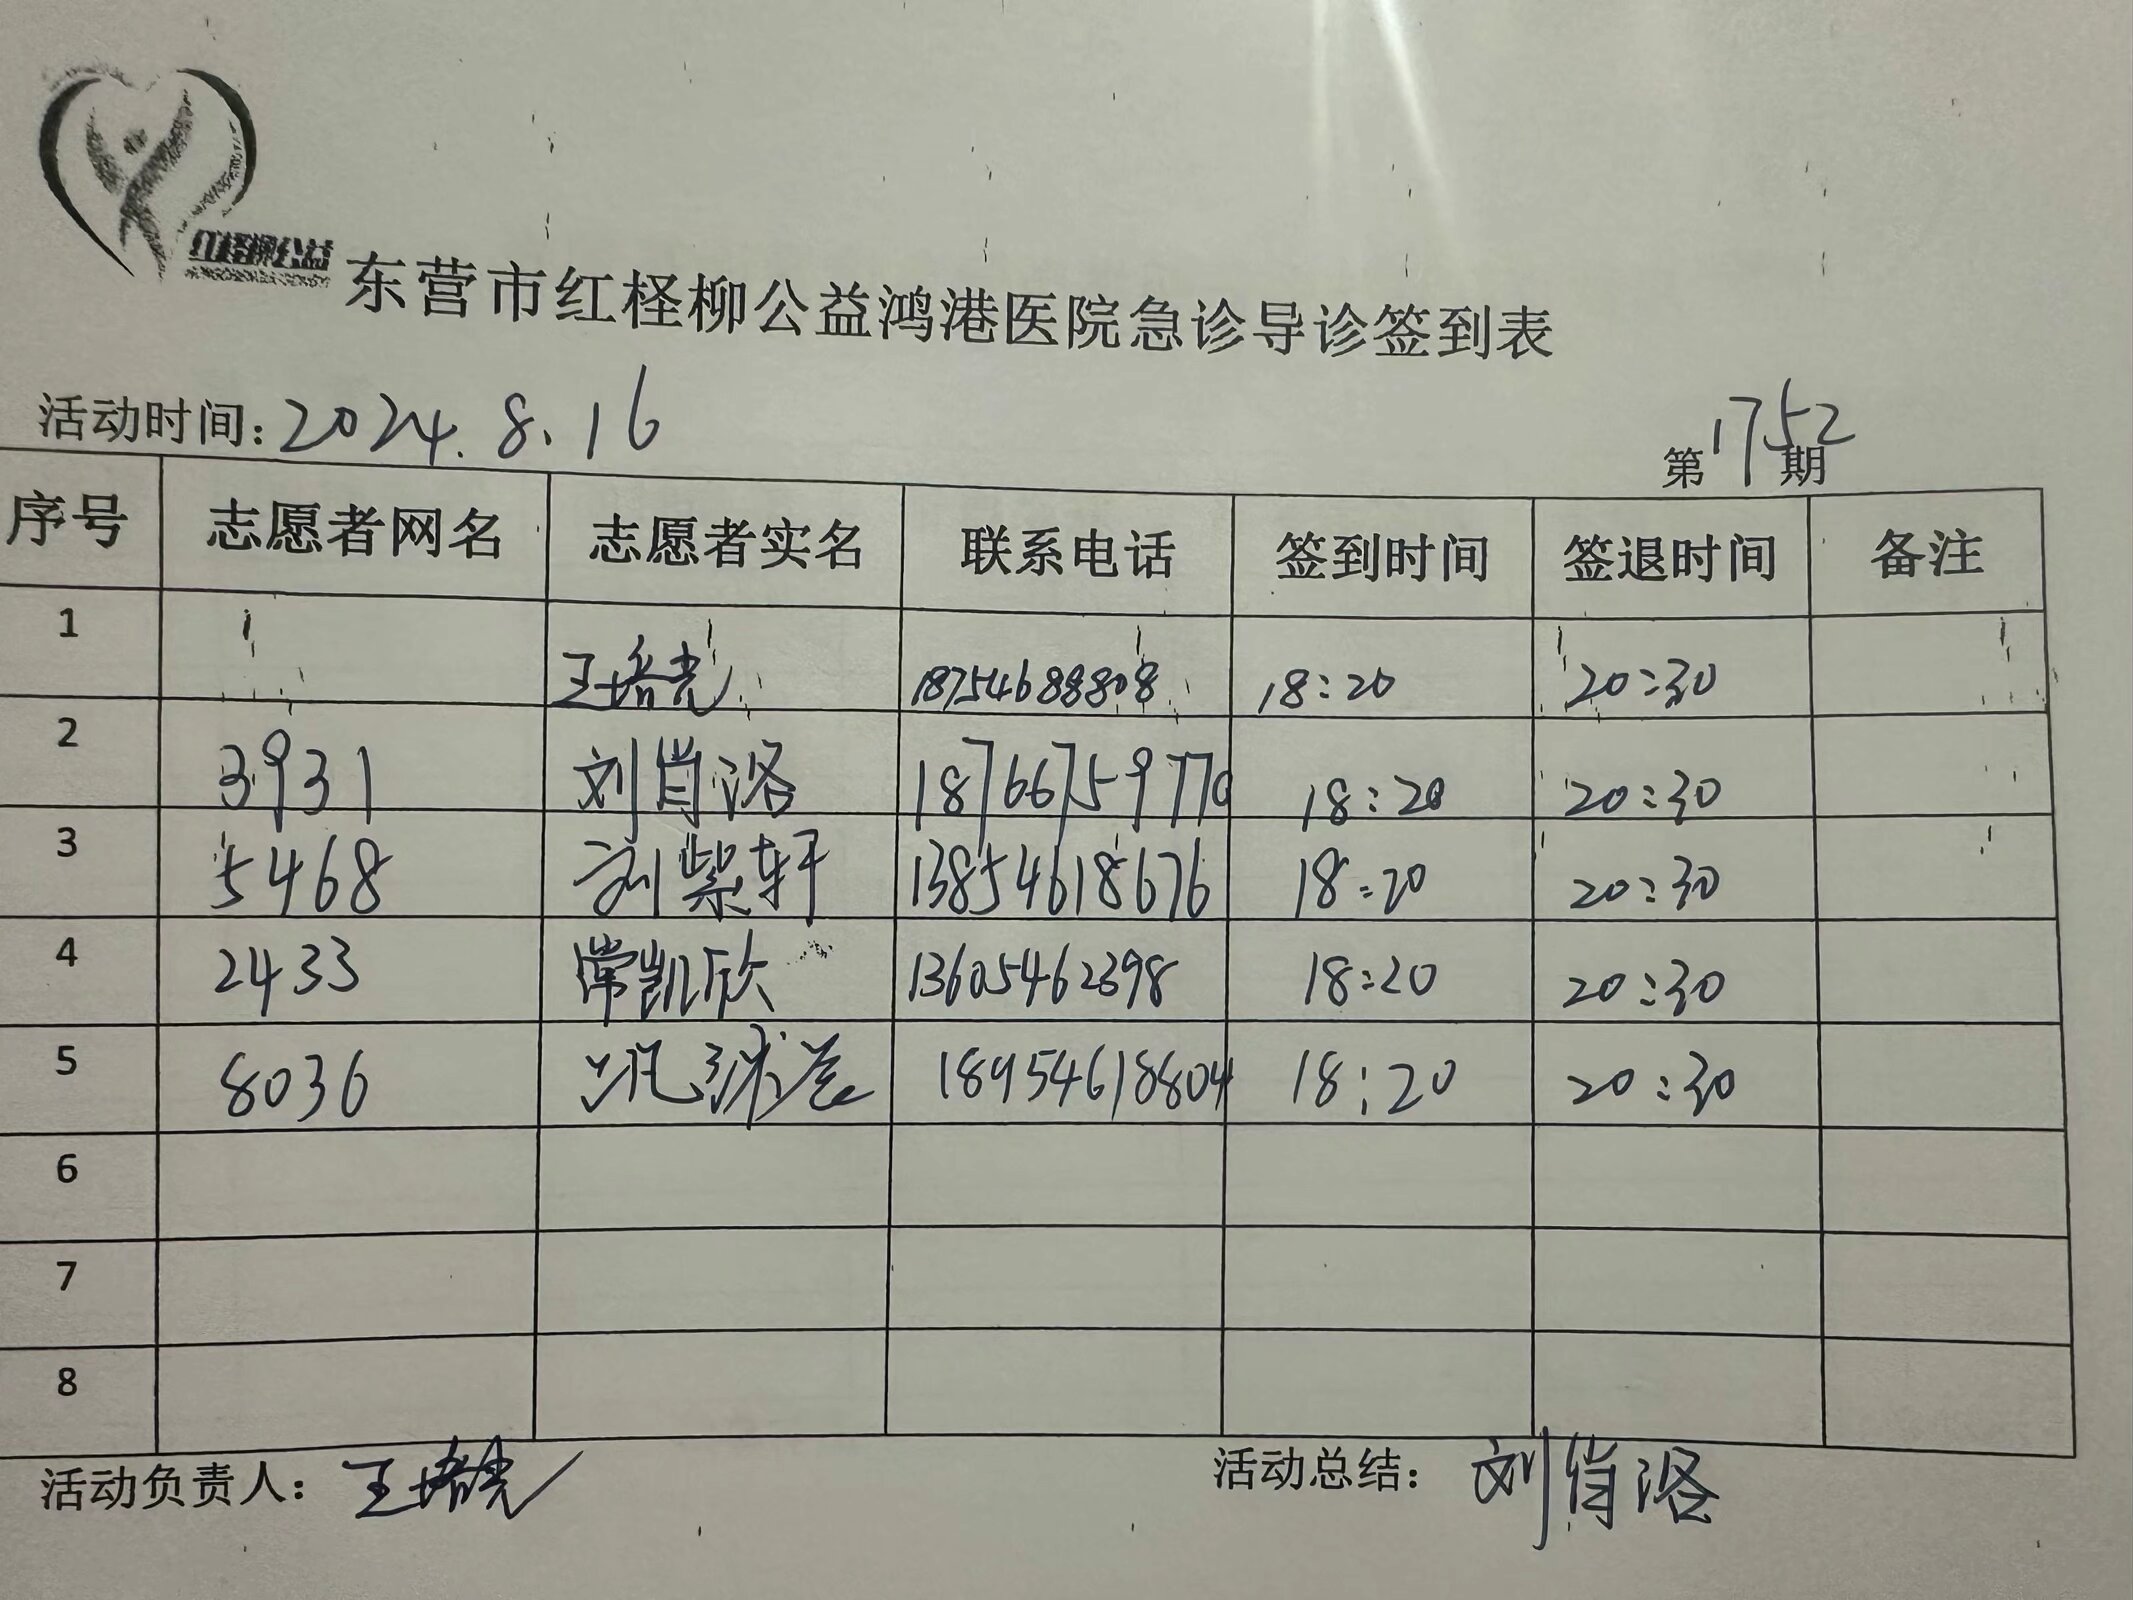 红柽柳公益
东营市红柽柳公益鸿港医院急诊导诊签到表
活动时间: 2024.8.16 第1752期
序号 志愿者网名 志愿者实名 联系电话 签到时间 签退时间 备注
1 王培光 18754688808 18:20 20:30
2 3931 刘肖洛 18766759770 18:20 20:30
3 5468 刘紫轩 13854618676 18:20 20:30
4 2433 常凯欣 13605462398 18:20 20:30
5 8036 18954618804 18:20 20:30
6
7
8
活动负责人: 王培光 活动总结: 刘肖洛